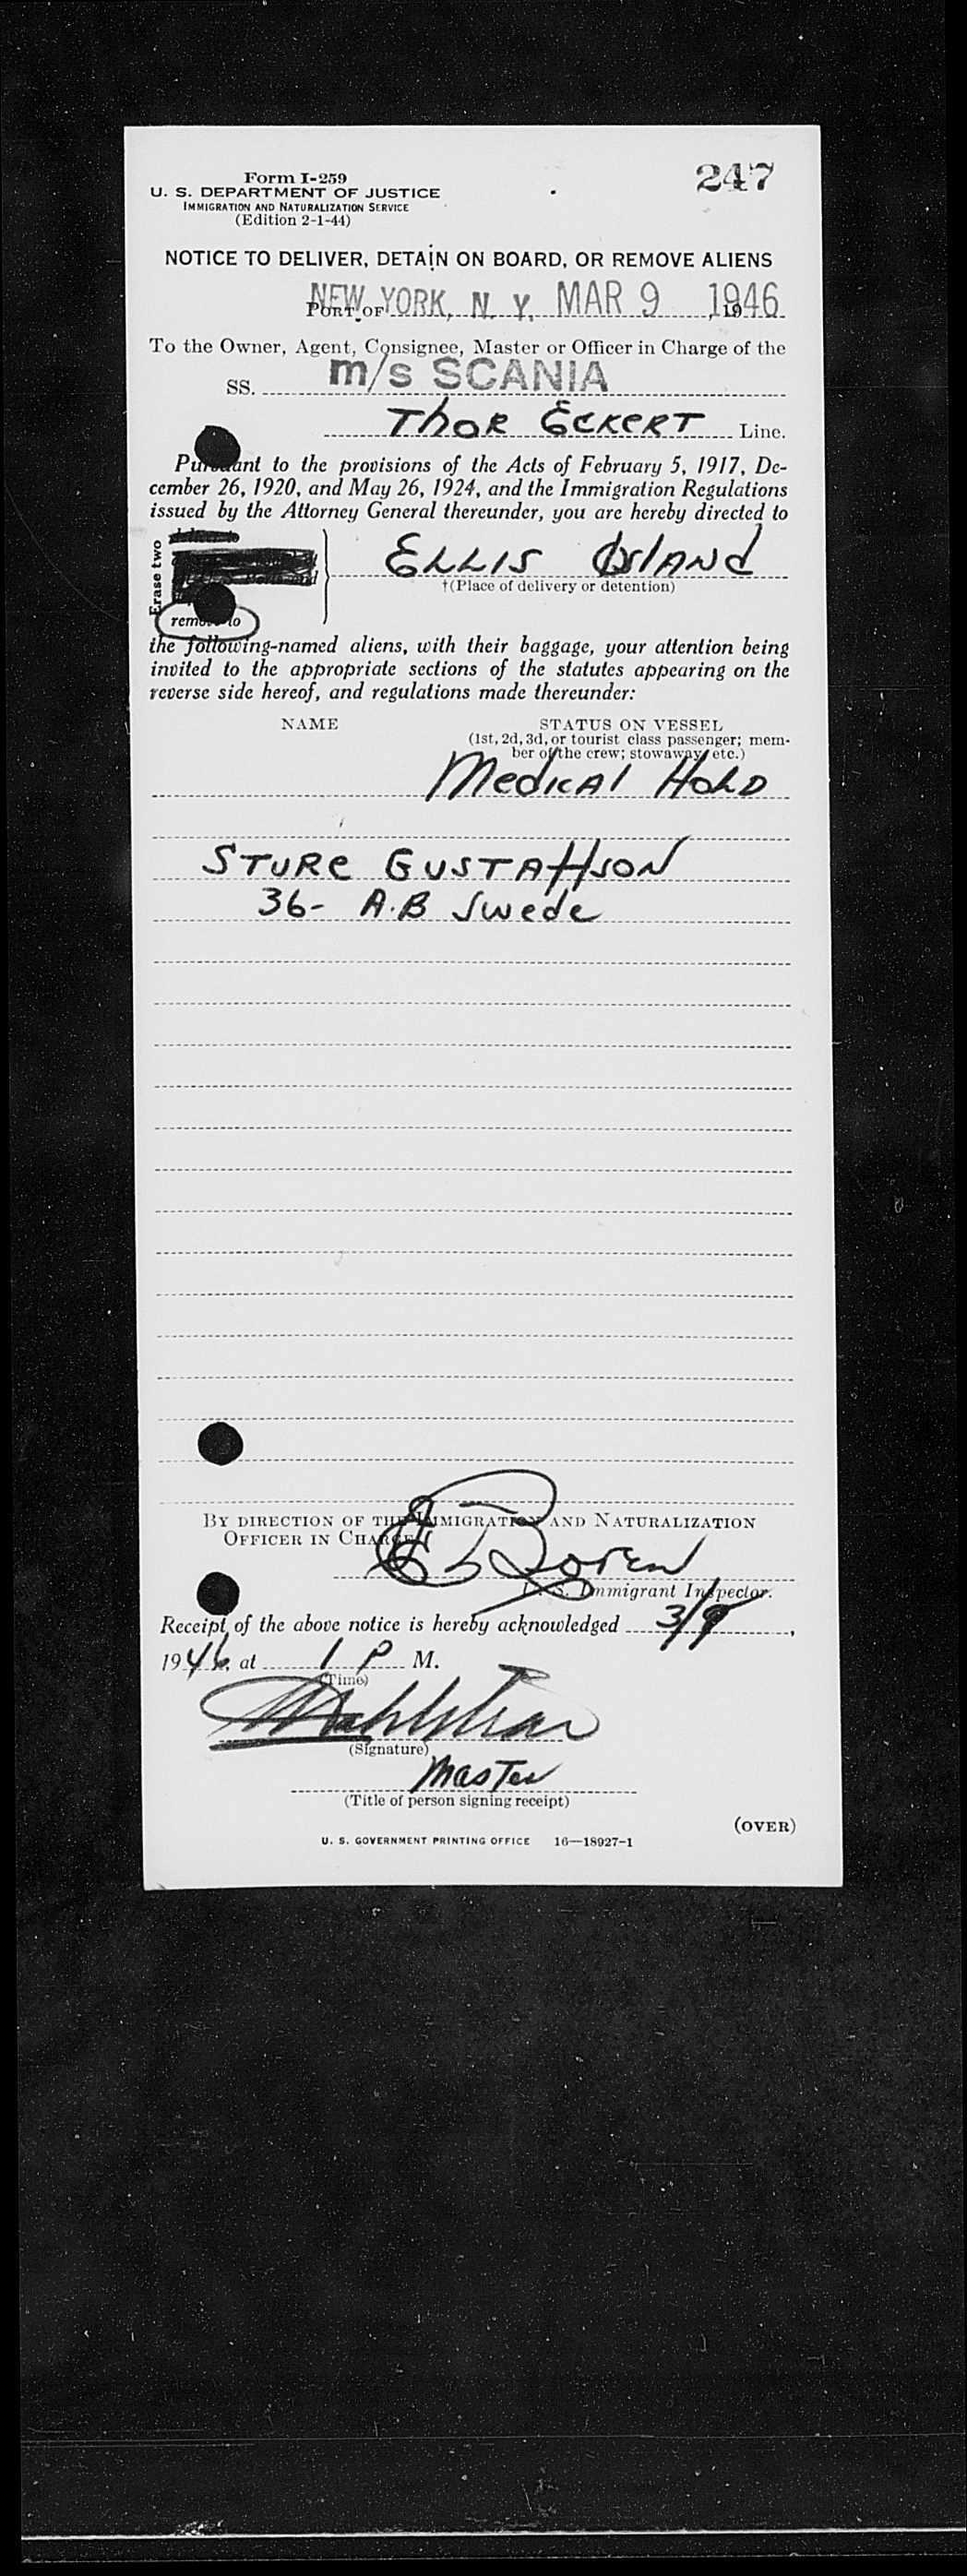 247
Form I-259
U. S. DEPARTMENT OF JUSTICE
IMMIGRATION AND NATURALIZATION SERVICE
(Edition 2-1-44)
NOTICE TO DELIVER, DETAIN ON BOARD, OR REMOVE ALIENS
PORT OF NEW YORK, N. Y. MAR 9, 1946
To the Owner, Agent, Consignee, Master or Officer in Charge of the
SS. m/s SCANIA
THOR ECKERT Line.
Pursuant to the provisions of the Acts of February 5, 1917, De-
cember 26, 1920, and May 26, 1924, and the Immigration Regulations
issued by the Attorney General thereunder, you are hereby directed to
Erase two
ELLIS ISLAND
†(Place of delivery or detention)
remove to
the following-named aliens, with their baggage, your attention being
invited to the appropriate sections of the statutes appearing on the
reverse side hereof, and regulations made thereunder:
NAME STATUS ON VESSEL
(1st, 2d, 3d, or tourist class passenger; mem-
ber of the crew; stowaway, etc.)
MEDICAL HOLD
STURE GUSTAFFSON
36- A.B Swede
BY DIRECTION OF THE IMMIGRATION AND NATURALIZATION
OFFICER IN CHARGE:
U. S. Immigrant Inspector.
Receipt of the above notice is hereby acknowledged 3/9,
1946, at 1 P M.
(Time)
(Signature)
Master
(Title of person signing receipt)
(OVER)
U. S. GOVERNMENT PRINTING OFFICE 16—18927-1